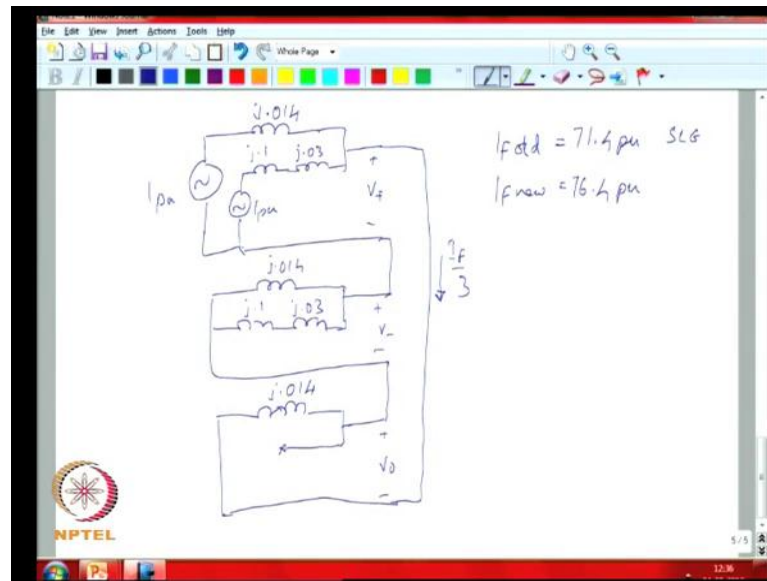 File Edit View Insert Actions Tools Help
Whole Page
j.014
j.1 j.03
1pu
1pu
+
Vf
-
If old = 71.4 pu SLG
If new = 76.4 pu
If
3
j.014
j.1 j.03
+
V-
-
j.014
+
V0
-
NPTEL
5/5
12:36